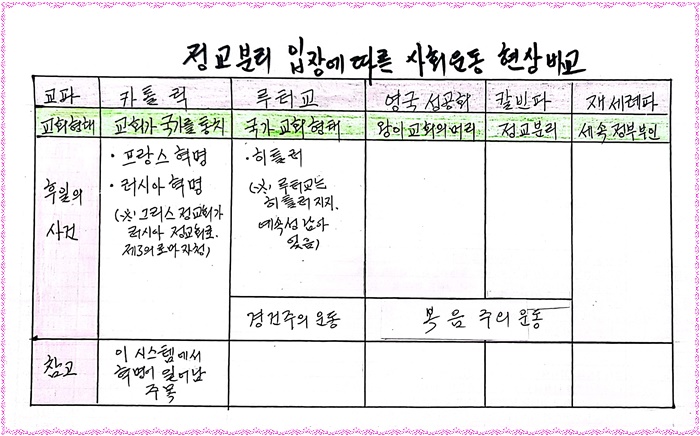 정교분리 입장에 따른 사회운동 현상 비교
교파 카톨릭 루터교 영국 성공회 칼빈파 재세례파
교회형태 교회가 국가를 통치 국가 교회 형태 왕이 교회의 머리 정교분리 세속 정부 부인
후일의 사건
· 프랑스 혁명
· 러시아 혁명
그리스 정교회가
러시아 정교회로.
제3의 로마 자칭)
· 히틀러
루터교는
히틀러 지지.
예속성 남아
있음)
경건주의 운동 복음주의 운동
참고
이 시스템에서
혁명이 일어남
주목